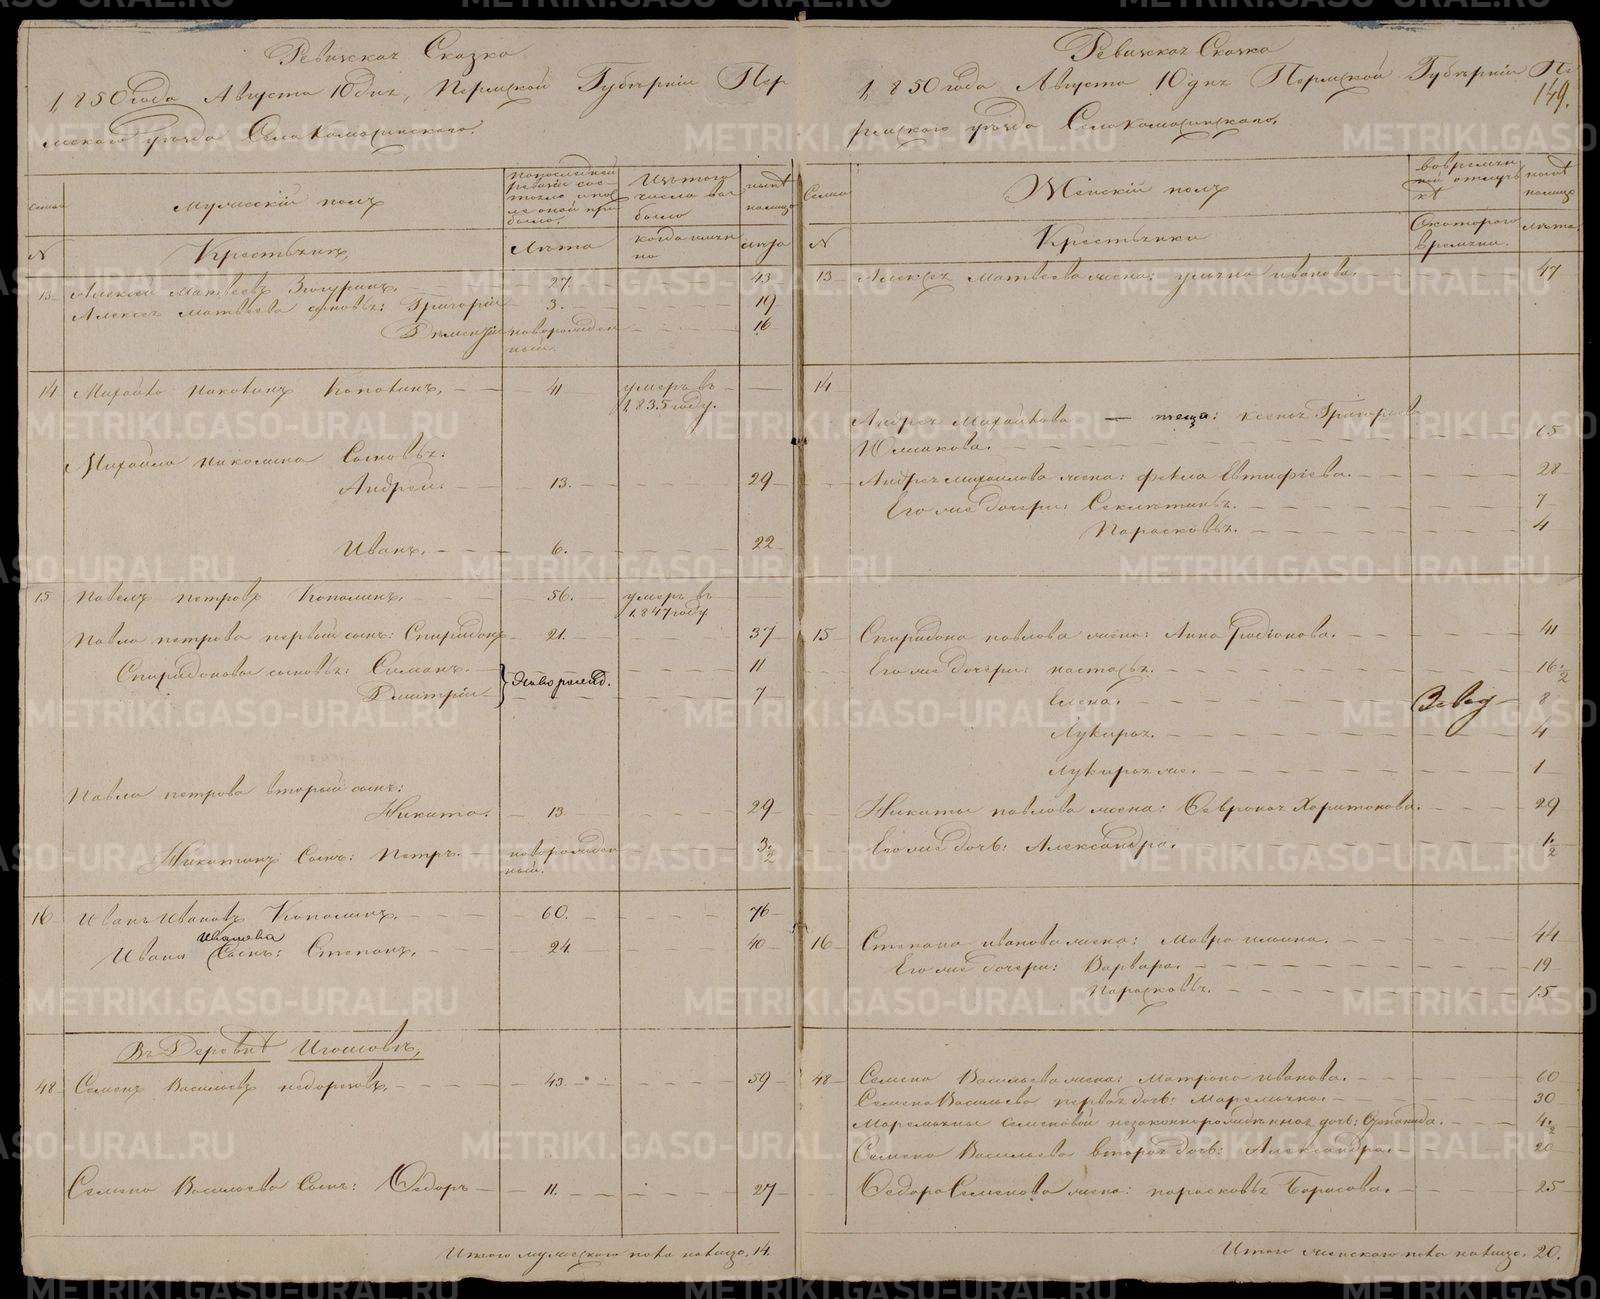 Ревизская Сказка
1850 года Августа 10 дня, Пермской Губерніи Пер
мскаго уѣзда Села Комаринскаго.
Семьи
Мужескій полъ
По последней ревизіи состояло и после оной прибыло.
Изъ того числа выбыло
нынѣ налицо
N
Крестьянъ
Лѣта
когда именно
лѣта
13 Алексей Матвѣевъ 27. 43
Алексея Матвѣева сыновья: Григорій 3. 19
новорожденный. 16
14 Михайло Копосинъ, 41 умеръ въ 1835 году.
Михайла сыновья:
Андрей. 13. 29
Иванъ. 6. 22
15 Павелъ Петровъ 56. умеръ въ 1847 году
Павла Петрова первый сынъ: Спиридонъ 21. 37
Спиридоновы сыновья: Симанъ. 11
Дмитрій новорожд. 7
Павла Петрова вторый сынъ:
Никита. 13. 29
Никитинъ сынъ: Петръ. новорожденный. 3 1/2
16 Иванъ Ивановъ 60. 76
Ивана Иванова сынъ: Степанъ. 24. 40
Въ Деревнѣ
48 Семенъ Васильевъ 43 59
Семена Васильева сынъ: Ѳедоръ 11. 27
Итого мужескаго пола налицо, 14.
Ревизская Сказка
1850 года Августа 10 дня Пермской Губерніи Пе
149.
рмскаго уѣзда Села Комаринскаго.
Семьи
Женскій полъ
во временной отлучкѣ
нынѣ налицо
N
Крестьянки
Съ котораго времени.
лѣта.
13 Алексея Матвѣева жена: Ульяна Иванова. 47
14
Андрея Михайлова — теща: Ксенья Григорьева
65
Андрея Михайлова жена: Фекла 28
Его же дочери: 7
Парасковья. 4
15 Спиридона Павлова жена: Анна 41
Его же дочери: Настасья. 16 1/2
Елена. Завод 8
Лукирья. 4
Лукирья же. 1
Никиты Павлова жена: Февронья Харитонова. 29
Его же дочь: Александра. 1 1/2
16 Степана Иванова жена: Мавра 44
Его же дочери: Варвара. 19
Парасковья. 15
48 Семена Васильева жена: Матрона Иванова. 60
Семена Васильева первая дочь: Маремьяна. 30
Маремьяны Семеновой незаконнорожденная дочь: 4 1/2
Семена Васильева вторая дочь: Александра. 20
Ѳедора Семенова жена: Парасковья Борисова. 25
Итого женскаго пола налицо. 20.
METRIKI.GASO-URAL.RU